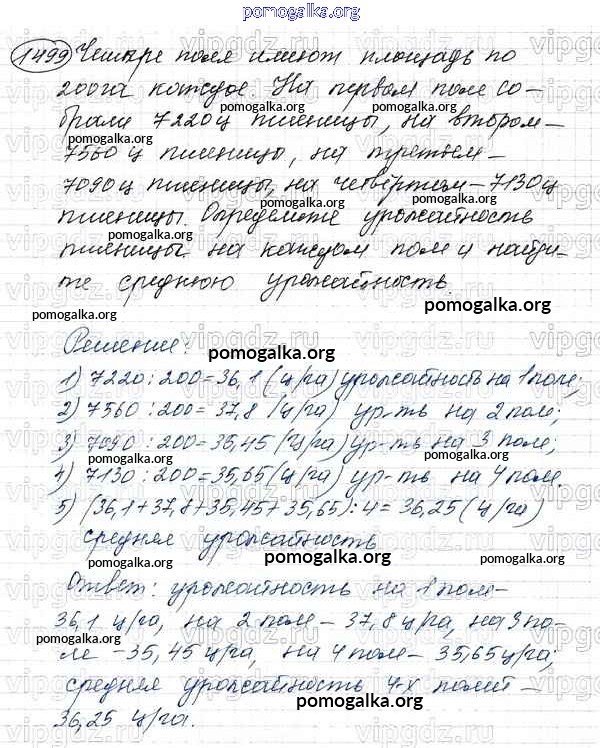 pomogalka.org
1499 Четыре поля имеют площадь по
200га каждое. На первом поле со-
брали 7220ц пшеницы, на втором –
7560 ц пшеницы, на третьем –
7090ц пшеницы, на четвёртом – 7130ц
пшеницы. Определите урожайность
пшеницы на каждом поле и найди-
те среднюю урожайность.
pomogalka.org
Решение:
pomogalka.org
1) 7220 : 200 = 36,1 (ц/га) урожайность на 1 поле;
2) 7560 : 200 = 37,8 (ц/га) ур-ть на 2 поле;
3) 7090 : 200 = 35,45 (ц/га) ур-ть на 3 поле;
4) 7130 : 200 = 35,65 (ц/га) ур-ть на 4 поле.
5) (36,1 + 37,8 + 35,45 + 35,65) : 4 = 36,25 (ц/га)
средняя урожайность
pomogalka.org
Ответ: урожайность на 1 поле –
36,1 ц/га, на 2 поле – 37,8 ц/га, на 3 по-
ле – 35,45 ц/га, на 4 поле – 35,65 ц/га;
средняя урожайность 4-х полей –
36,25 ц/га.